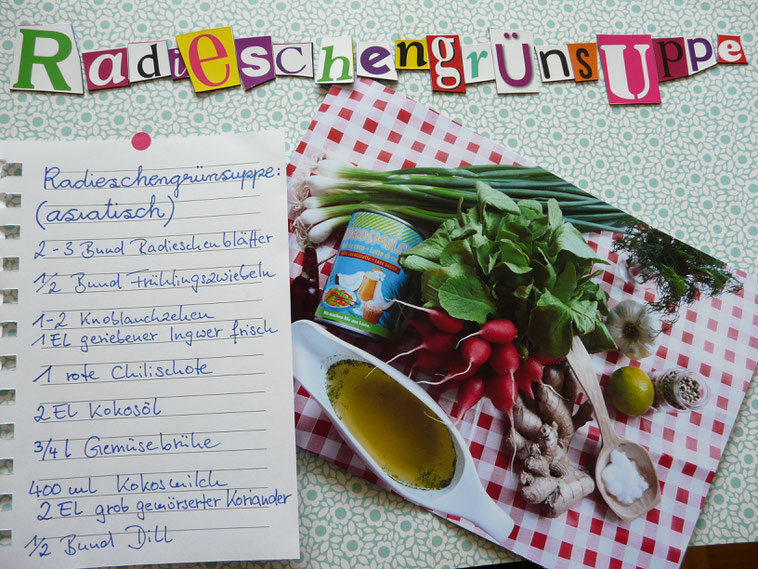 RadieschengrünsUppe
Radieschengrünsuppe:
(asiatisch)
2-3 Bund Radieschenblätter
1/2 Bund Frühlingszwiebeln
1-2 Knoblauchzehen
1 El geriebener Ingwer frisch
1 rote Chilischote
2 El Kokosöl
3/4 l Gemüsebrühe
400 ml Kokosmilch
2 El grob gemörserter Koriander
1/2 Bund Dill